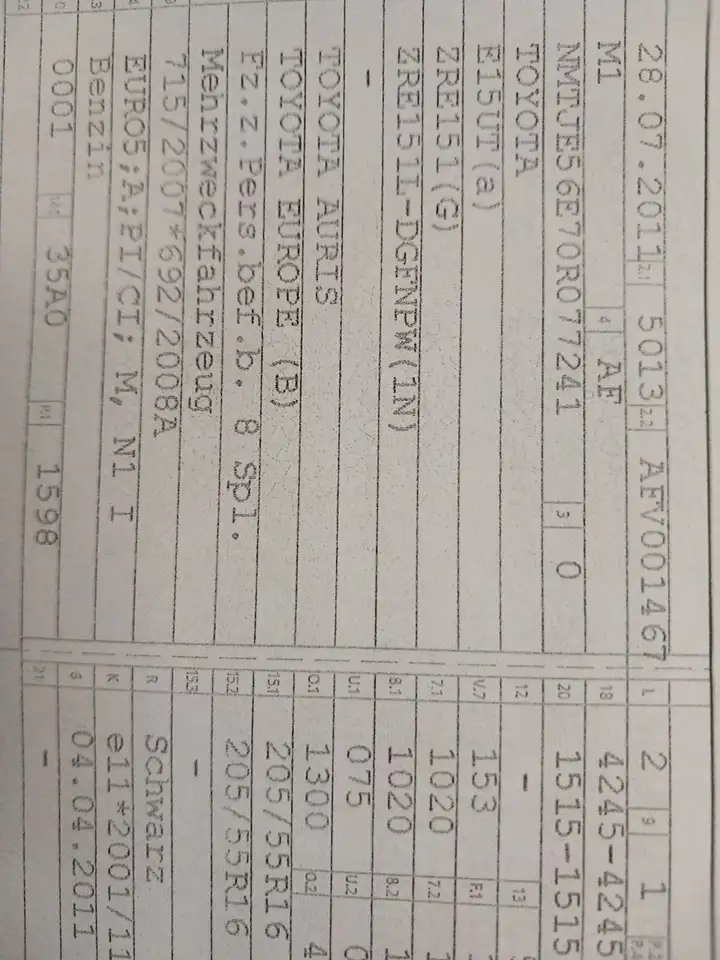 28.07.2011 2.1 5013 2.2 AFV001467 L 2 9 1
M1 4 AF 18 4245-4245
NMTJE56E70R077241 3 0 20 1515-1515
TOYOTA 12 - 13
E15UT(a) V.7 153 F.1
ZRE151(G) 7.1 1020 7.2 1
ZRE151L-DGFNPW(1N) 8.1 1020 8.2 1
- U.1 075 U.2 0
TOYOTA AURIS O.1 1300 O.2 4
TOYOTA EUROPE (B) 15.1 205/55R16
Fz.z.Pers.bef.b. 8 Spl. 15.2 205/55R16
Mehrzweckfahrzeug 15.3 -
715/2007*692/2008A R Schwarz
EURO5;A;PI/CI; M, N1 I K e11*2001/11
Benzin 6 04.04.2011
0001 35A0 P.1 1598 21 -